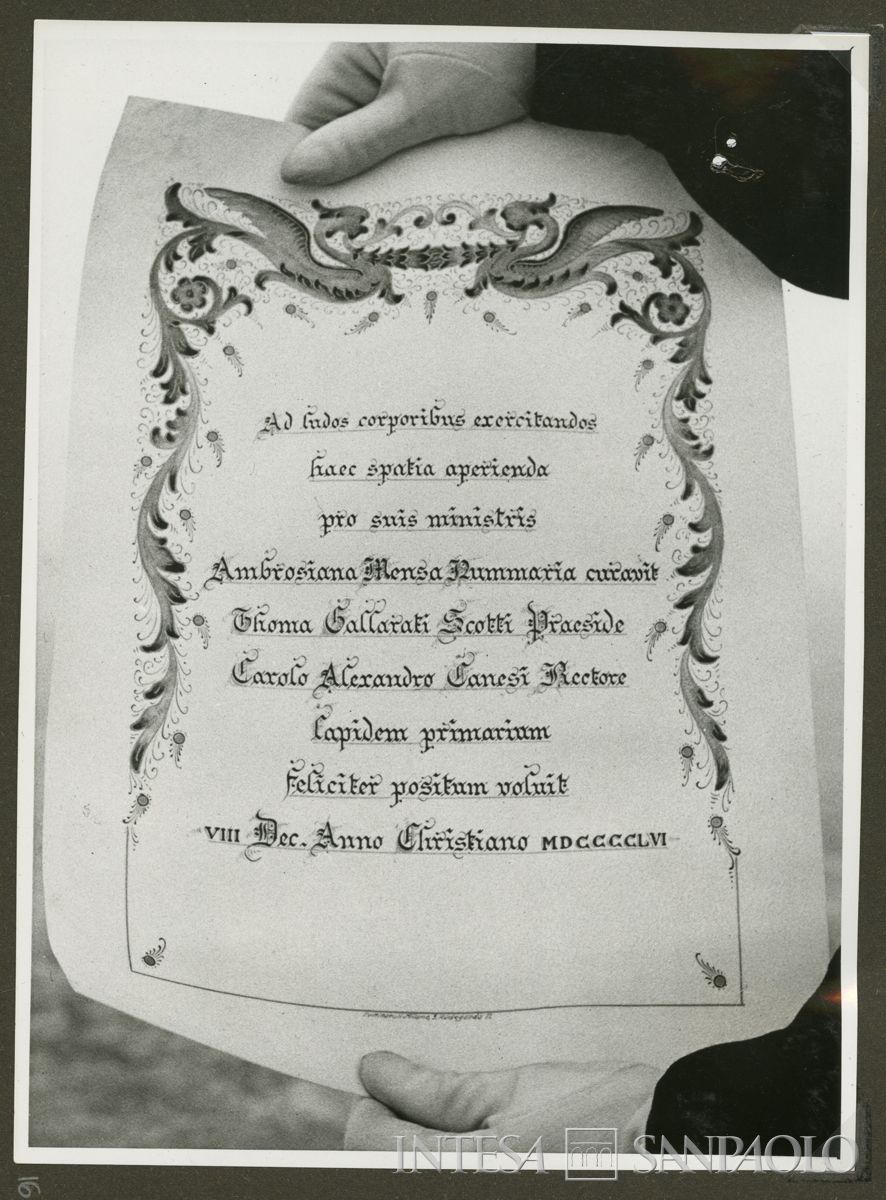 Ad ludos corporibus exercitandos
haec spatia aperienda
pro suis ministris
Ambrosiana Mensa Nummaria curavit
Thoma Gallarati Scotti Praeside
Carolo Alexandro Canesi Rectore
lapidem primarium
feliciter positum voluit
VIII Dec. Anno Christiano MDCCCCLVI
INTESA SANPAOLO
16